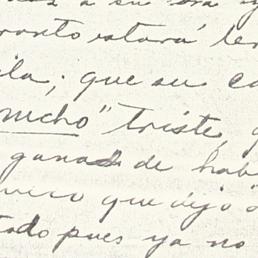 a su
pronto estará
ila; que su
mucho" triste,
ganas de hab
que dejó
tado pues ya no